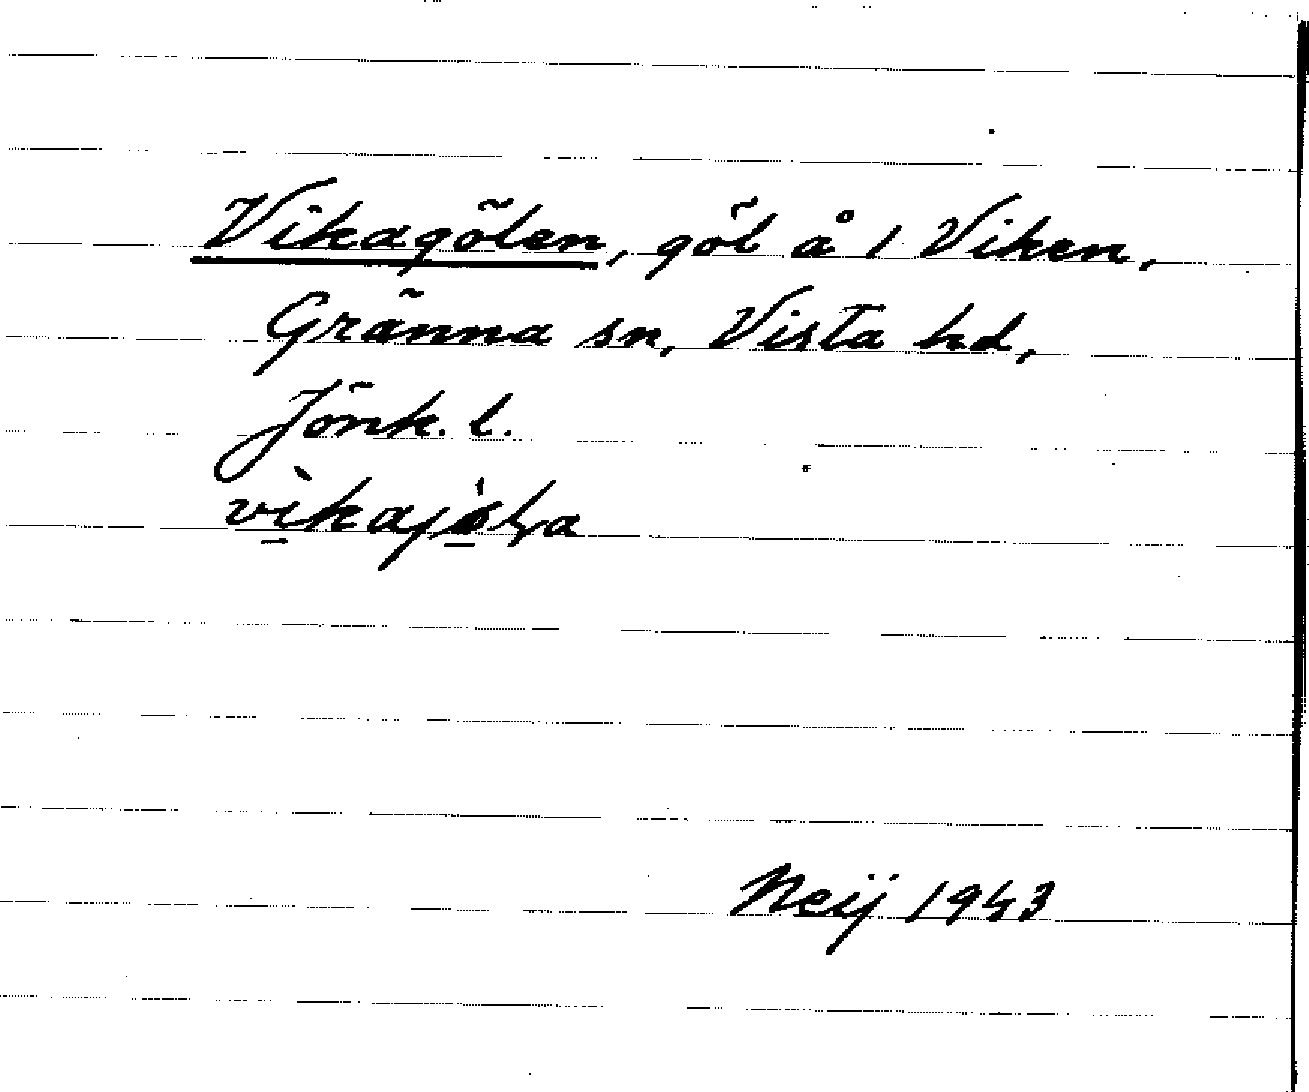 Vikagölen, göl å 1 Viken,
Gränna sn, Vista hd,
Jönk. l.
Neij 1943